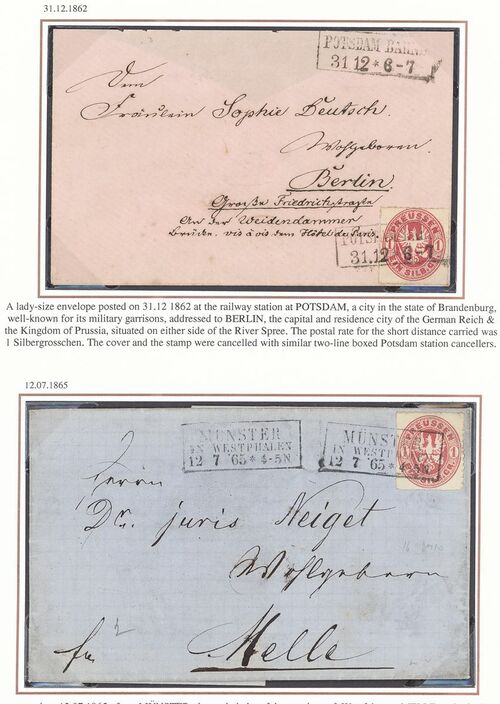 31.12.1862
POTSDAM BAHNH
31 12 * 6-7
Dem
Fräulein Sophie Deutsch.
Wohlgeboren.
Berlin.
Große Friedrichstraße
An der Weidendammer
Brücke. vis à vis dem Hôtel de Paris.
PREUSSEN
1 1
EIN SILB.GR.
POTSD
31.12 6-7
A lady-size envelope posted on 31.12 1862 at the railway station at POTSDAM, a city in the state of Brandenburg,
well-known for its military garrisons, addressed to BERLIN, the capital and residence city of the German Reich &
the Kingdom of Prussia, situated on either side of the River Spree. The postal rate for the short distance carried was
1 Silbergrosschen. The cover and the stamp were cancelled with similar two-line boxed Potsdam station cancellers.
12.07.1865
MÜNSTER
IN WESTPHALEN
12 7 65 * 4-5N
MÜNST
IN WESTPH
12 7 65 * 4-5N
PREUSSEN
1 1
Herrn
Dr. juris Neiget
Wohlgeborn
fr. Melle